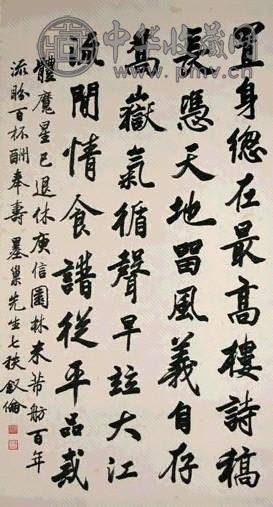 中华收藏网
www.pmv.cn
置身總在最高樓詩稿
長憑天地留風義自存
嵩嶽氣循聲早竝大江
流閒情食譜從平品戒
體魔星已退休庾信園林米芾舫百年
流盼百杯酬奉壽 墨巢先生七秩 叙倫